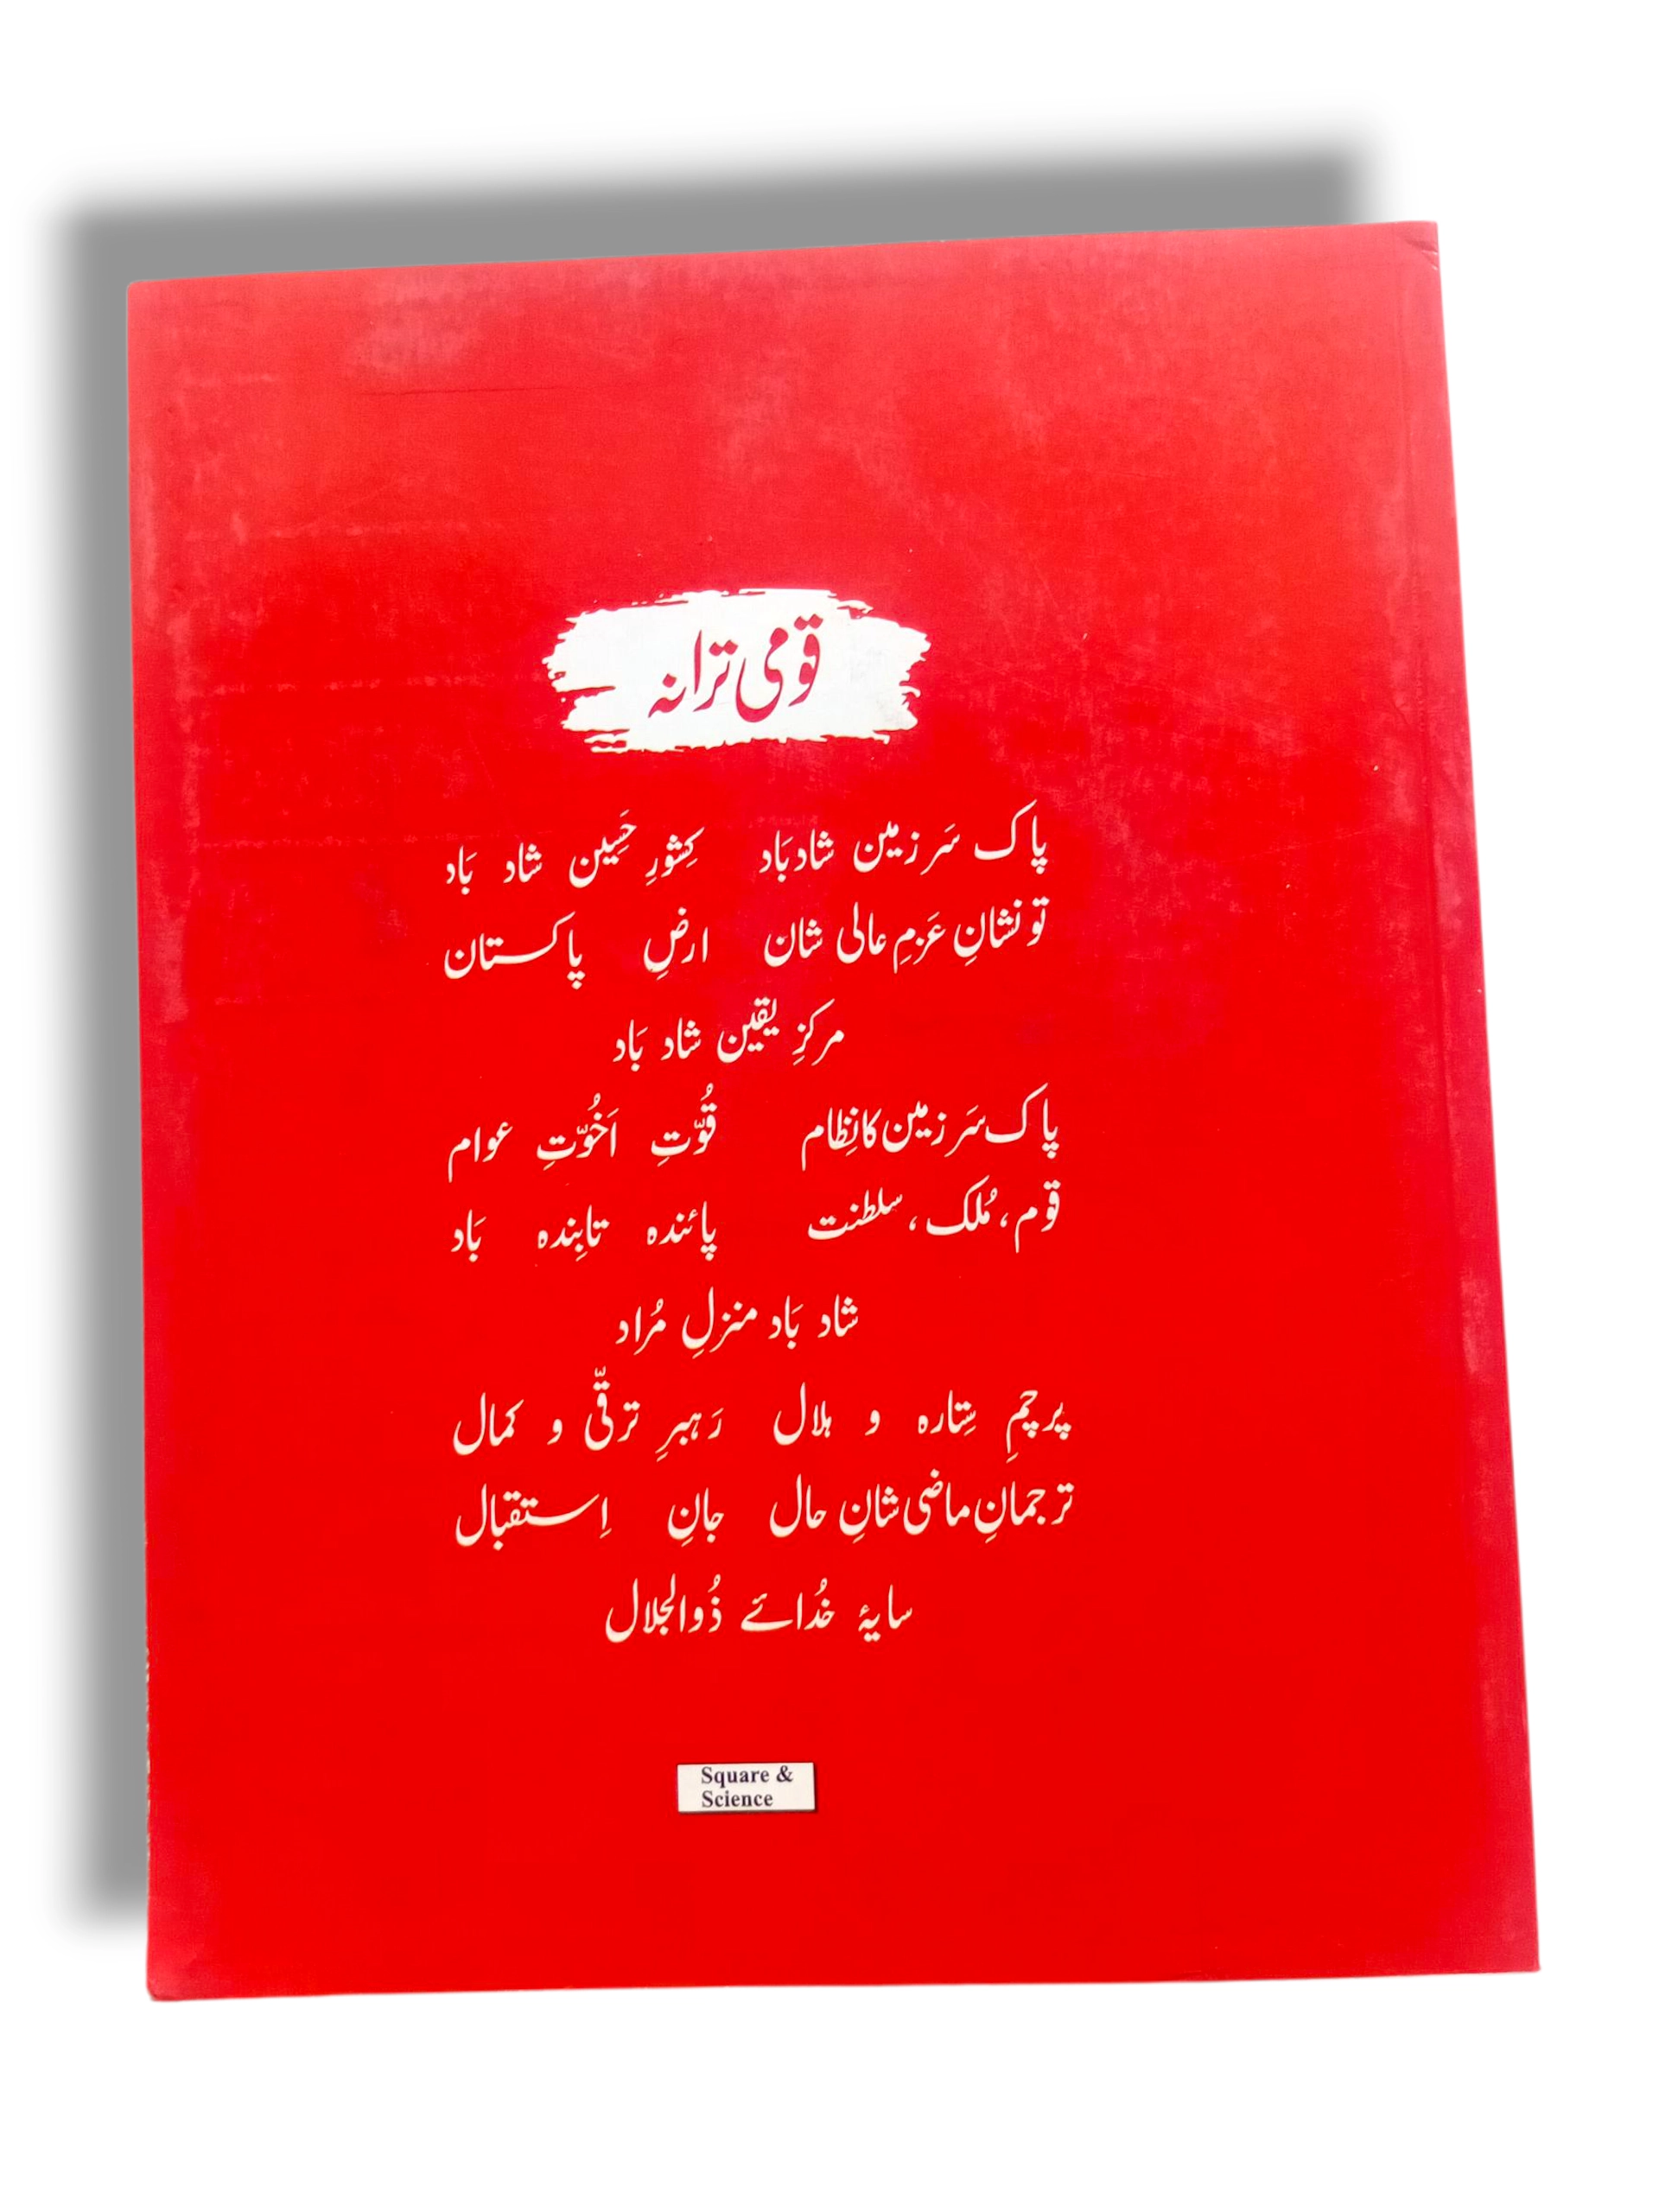 قومی ترانہ
پاک سَرزمین شادبَاد کِشورِ حَسِین شاد بَاد
تو نشانِ عَزمِ عالی شان ارضِ پاکستان
مرکزِ یقین شاد بَاد
پاک سَرزمین کا نِظام قُوّتِ اَخُوّتِ عوام
قوم، مُلک، سلطنت پائندہ تابِندہ بَاد
شاد بَاد منزلِ مُراد
پرچمِ سِتارہ و ہلال رَہبرِ ترقّی و کمال
ترجمانِ ماضی شانِ حال جانِ اِستقبال
سایۂ خُدائے ذُوالجلال
Square &
Science